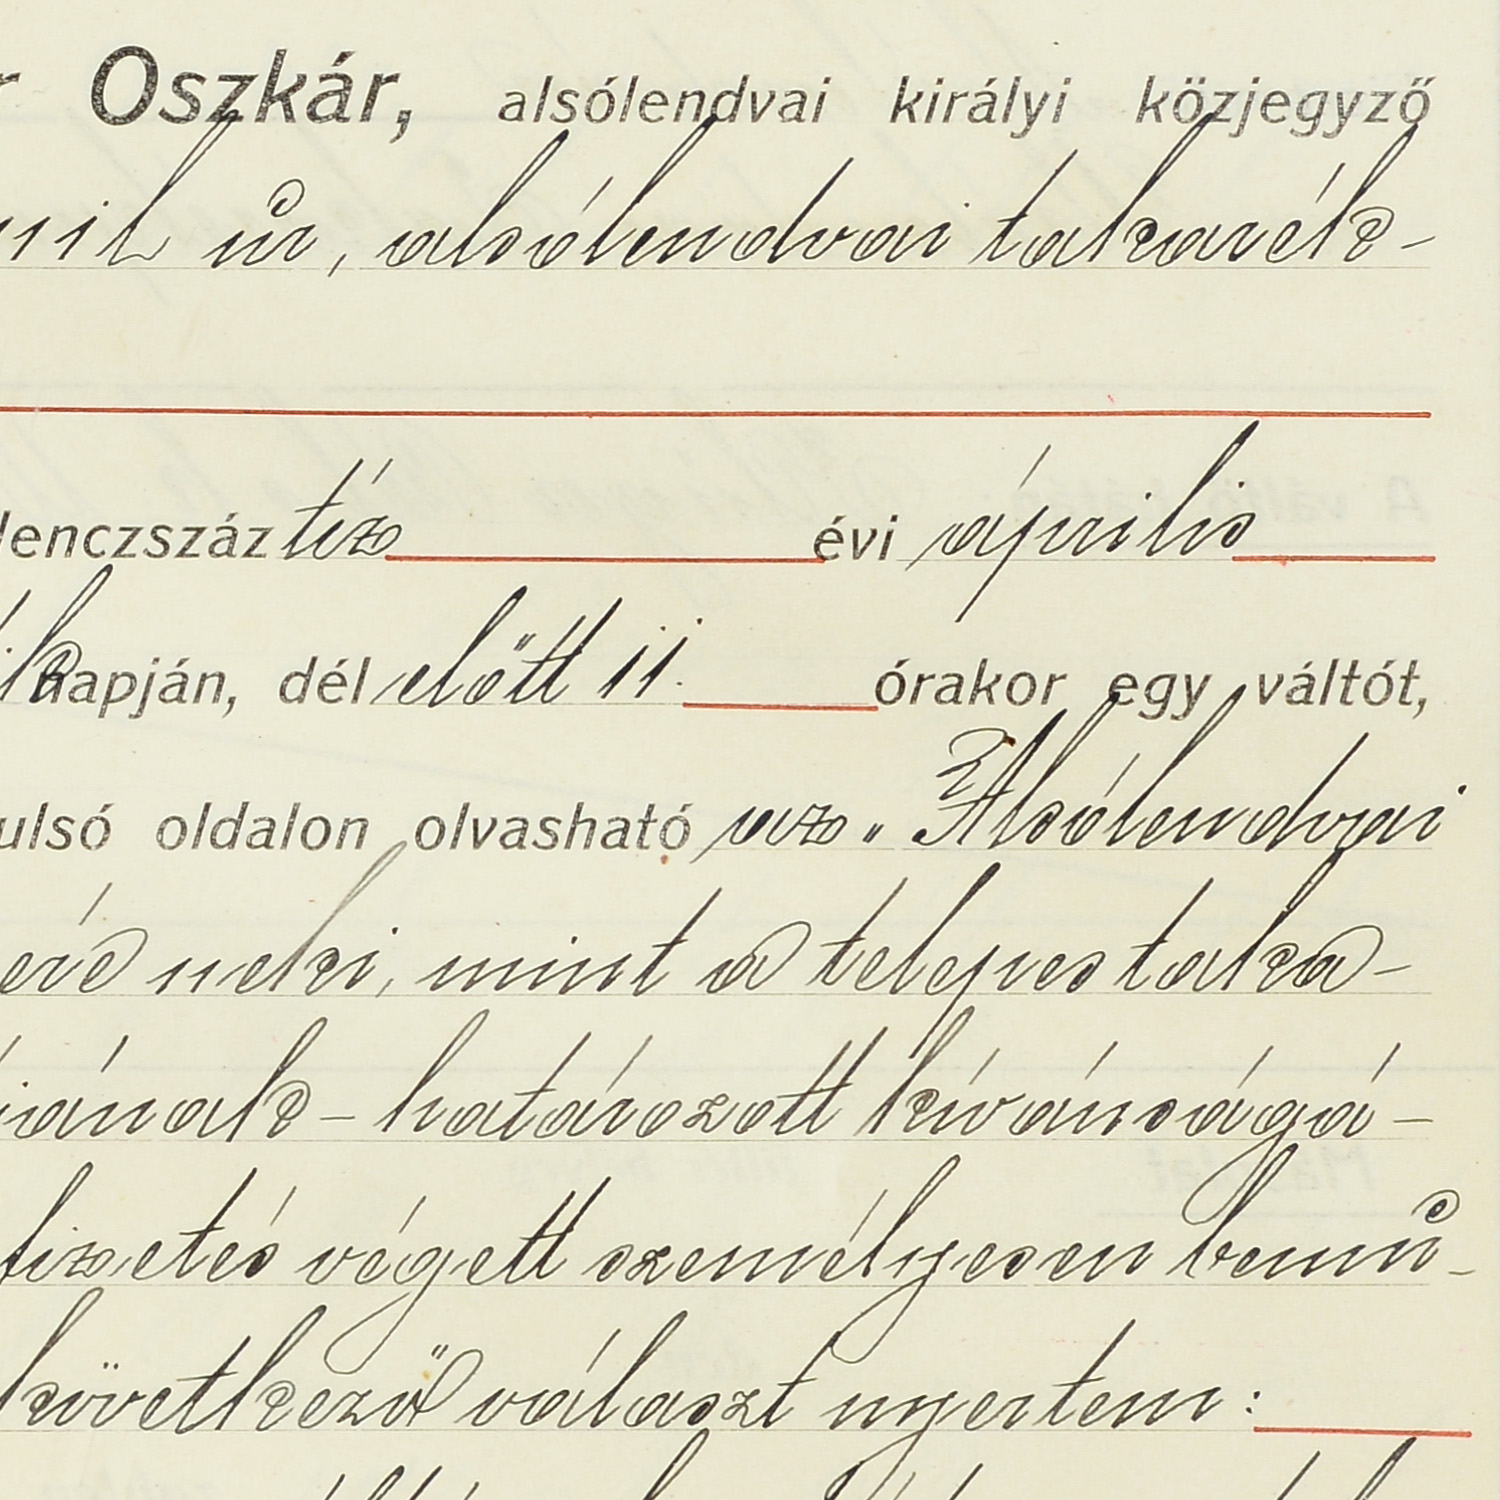 Oszkár, alsólendvai királyi közjegyző
úr, alsólendvai takarék-
lenczszáz tíz évi április
napján, dél előtt 11. órakor egy váltót,
ulsó oldalon olvasható az „Alsólendvai
neki, mint a telepes taka-
határozott kívánságá-
fizetés végett személyesen bemu-
következő választ nyertem: